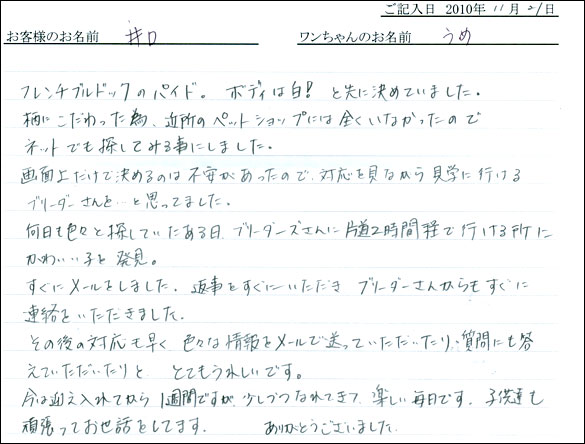 ご記入日 2010年 11月 21日
お客様のお名前 井口 ワンちゃんのお名前 うめ
フレンチブルドックのパイド。 ボディは白! と先に決めていました。
柄にこだわった為、近所のペットショップには全くいなかったので
ネットでも探してみる事にしました。
画面上だけで決めるのは不安があったので、対応を見ながら見学に行ける
ブリーダーさんを…と思ってました。
何日も色々と探していたある日、ブリーダーズさんに片道2時間程で行ける所に
かわいい子を発見。
すぐにメールをしました。返事をすぐにいただき ブリーダーさんからもすぐに
連絡をいただきました。
その後の対応も早く 色々な情報をメールで送っていただいたり、質問にも答
えていただいたりと とてもうれしいです。
今は迎え入れてから1週間ですが、少しづつなれてきて、楽しい毎日です。子供達も
頑張ってお世話をしてます。 ありがとうございました。